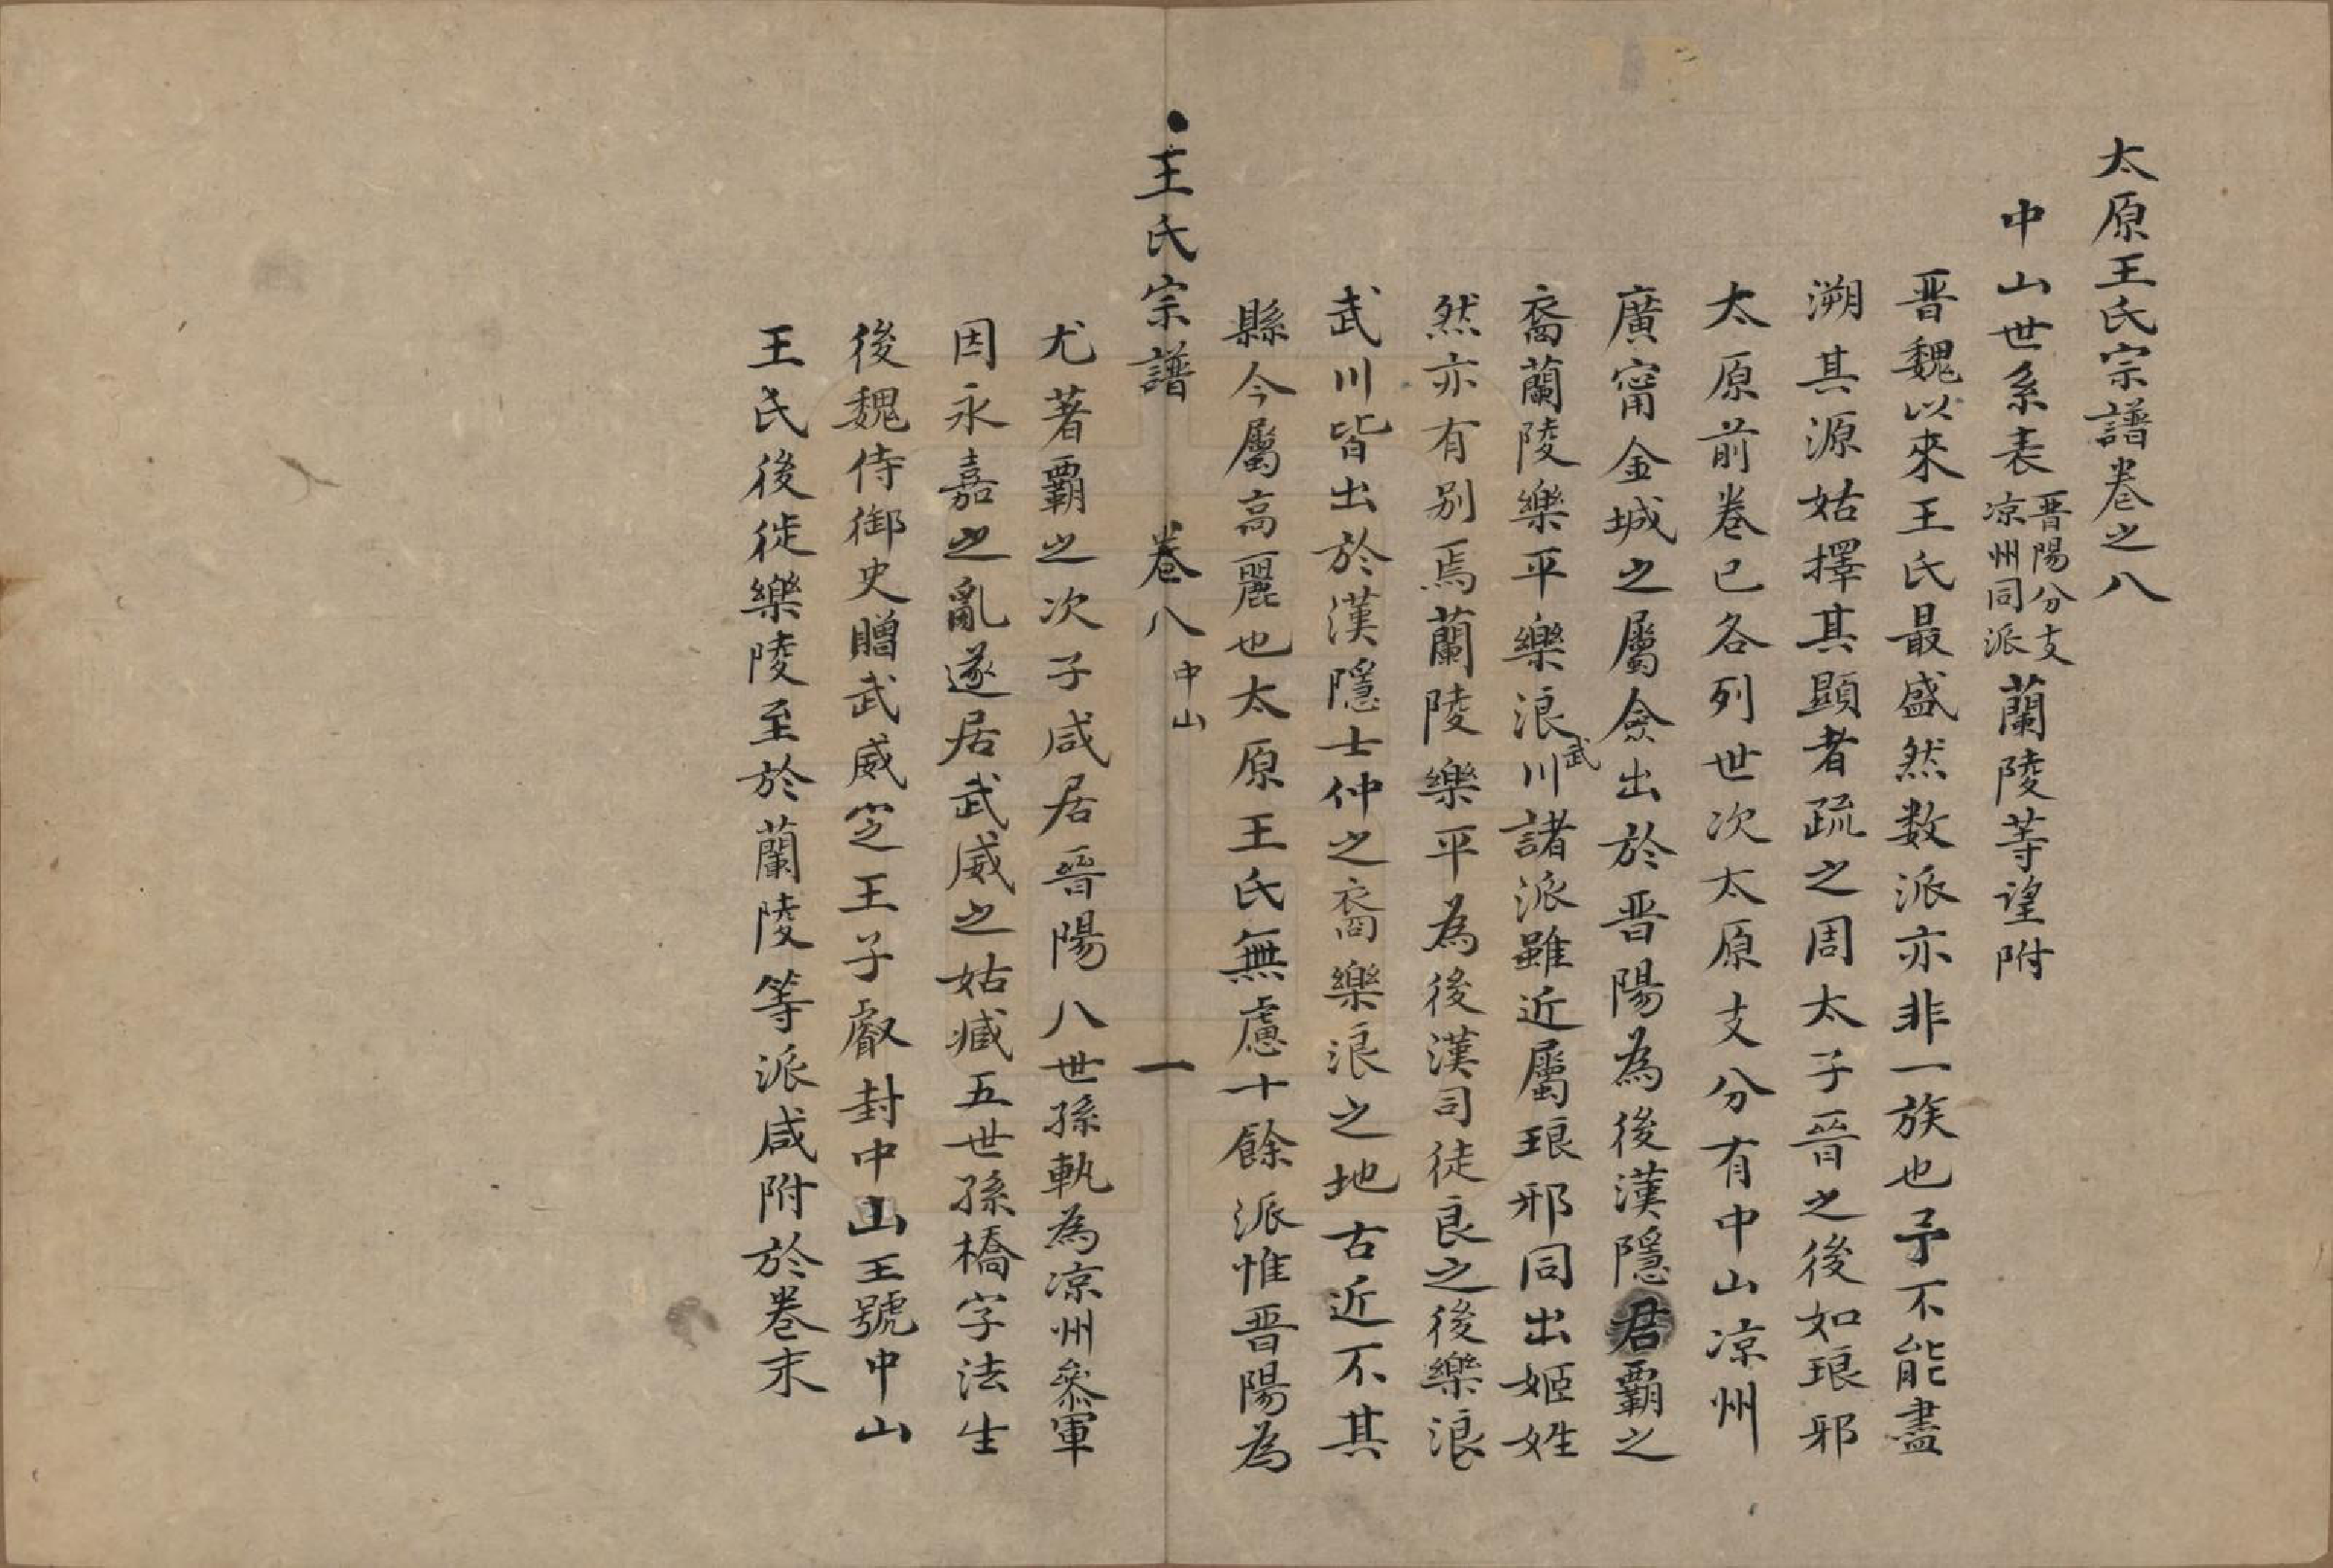 太原王氏宗譜卷之八
中山世系表晋陽分支凉州同派蘭陵等望附
晋魏以來王氏最盛然数派亦非一族也予不能盡
溯其源姑擇其顕者疏之周太子晉之後如琅邪
太原前卷已各列世次太原支分有中山凉州
廣甯金城之屬僉出於晋陽為後漢隱君霸之
裔蘭陵樂平樂浪武川諸派雖近屬琅邪同出姬姓
然亦有别焉蘭陵樂平為後漢司徒良之後樂浪
武川皆出於漢隱士仲之裔樂浪之地古近不其
縣今屬高麗也太原王氏無慮十餘派惟晋陽為
王氏宗譜 卷八 中山 一
尤著霸之次子咸居晉陽八世孫軌為凉州叅軍
因永嘉之亂遂居武威之姑臧五世孫橋字法生
後魏侍御史贈武威㝎王子叡封中山王號中山
王氏後徙樂陵至於蘭陵等派咸附於卷末